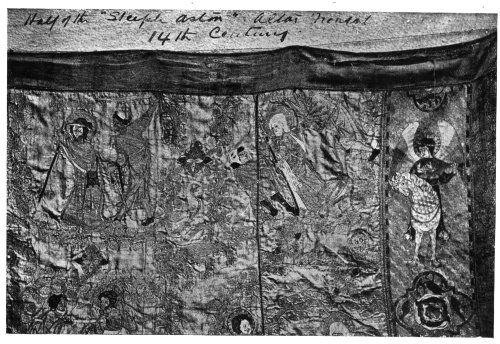 Half of the "Steeple Aston" Altar Frontal
14th Century